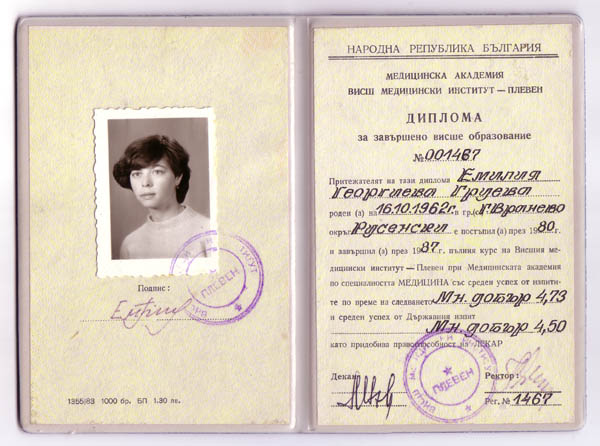 Подпис:
ВИСШ МЕДИЦИНСКИ ИНСТИТУТ
ПЛЕВЕН
1355/83 1000 бр. БП 1.30 лв.
НАРОДНА РЕПУБЛИКА БЪЛГАРИЯ
МЕДИЦИНСКА АКАДЕМИЯ
ВИСШ МЕДИЦИНСКИ ИНСТИТУТ — ПЛЕВЕН
ДИПЛОМА
за завършено висше образование
№ 001467
Притежателят на тази диплома Емилия
Георгиева Груева
роден (а) на 16.10.1962г. в гр.(с.) Вранево
окръг Русенски е постъпил (а) през 1980 г.
и завършил (а) през 1987. пълния курс на Висшия ме-
дицински институт — Плевен при Медицинската академия
по специалността МЕДИЦИНА със среден успех от изпити-
те по време на следването Мн. добър 4,73
и среден успех от Държавния изпит
Мн. добър 4,50
като придобива правоспособност на ЛЕКАР
Декан: Ректор:
ВИСШ МЕДИЦИНСКИ ИНСТИТУТ
ПЛЕВЕН
Рег. № 1467